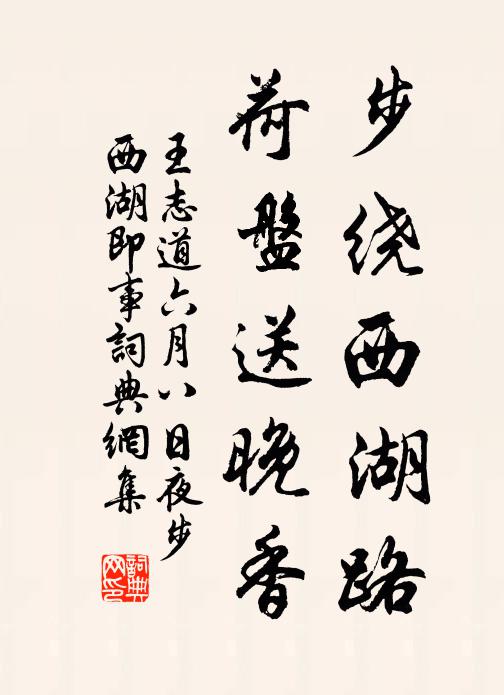 步绕西湖路
荷盤送晚香
王志道六月八日夜步
西湖即事詞典網集
詞典
网印